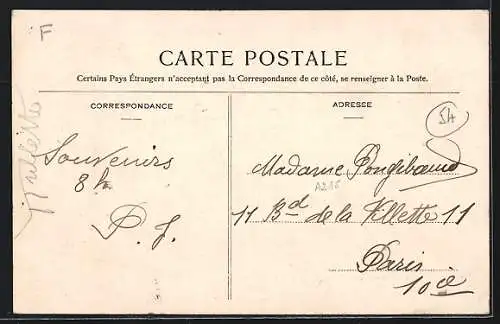 F
CARTE POSTALE
Certains Pays Étrangers n'acceptant pas la Correspondance de ce côté, se renseigner à la Poste.
CORRESPONDANCE
ADRESSE
54
Souvenirs
8 h
P. J.
Madame Pongibaud
A216
11 Bd de la Villette 11
Paris
10e